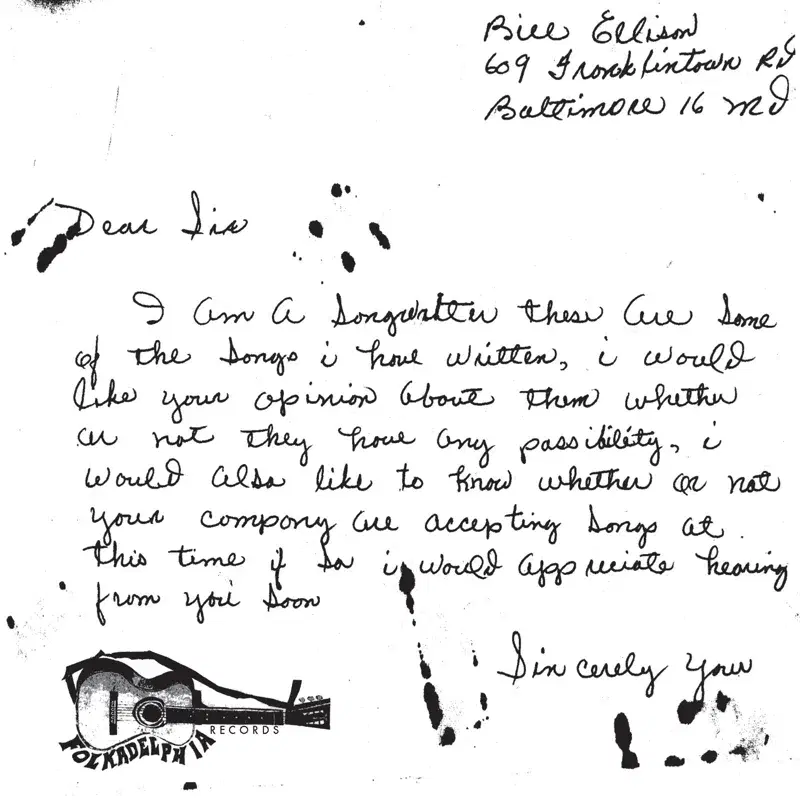 Bill Ellison
609 Franklintown Rd
Baltimore 16 Md
Dear Sir
I am a songwritter these are some
of the songs i have written, i would
like your opinion about them whether
or not they have any passibility, i
would also like to know whether or not
your company are accepting songs at
this time if so i would appreciate hearing
from you soon
Sincerely your
RECORDS
FOLKADELPHIA